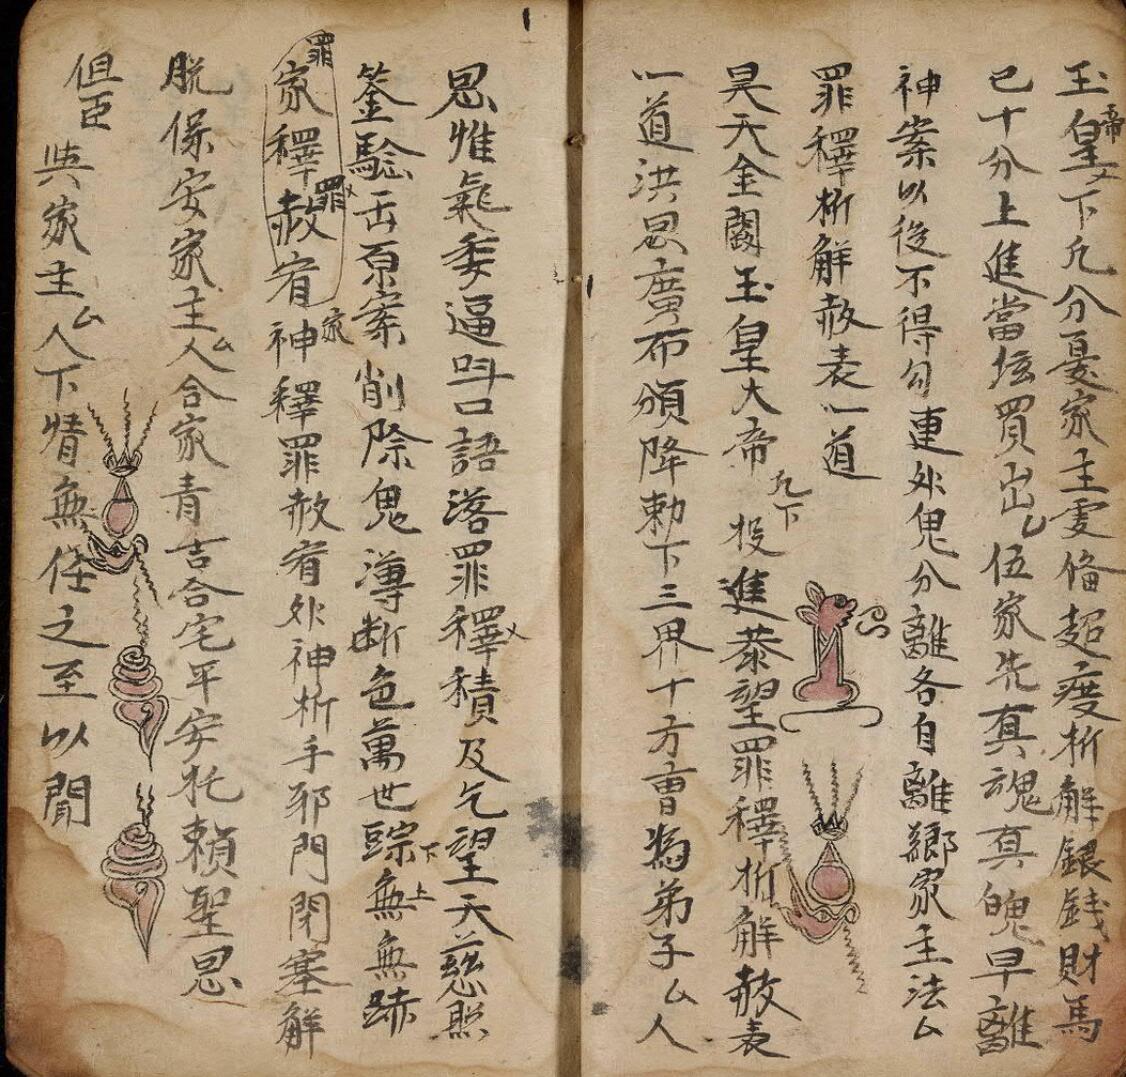 玉皇帝下凡分憂家主雯俻超度析解銀錢財馬
已十分上進當坛買出乚伍家先真魂真魄早離
神案以後不得勾連外鬼分離各自離鄉家主法厶
罪釋析解赦表一道
昊天金闕玉皇大帝凡下投進恭望罪釋析解赦表
一道洪恩廣布頒降勅下三界十方曹為弟子厶人
恩惟氣委逼呌口語落罪釋積及乞望天慈熙
筌驗缶原案削除鬼溥断色萬世踪下無上無跡
罪家釋罪赦宥神家釋罪赦宥外神析手邪門閉塞解
脱保安家主厶人合家青吉合宅平安托賴聖恩
但臣
㒷家主厶人下情無任之至以聞